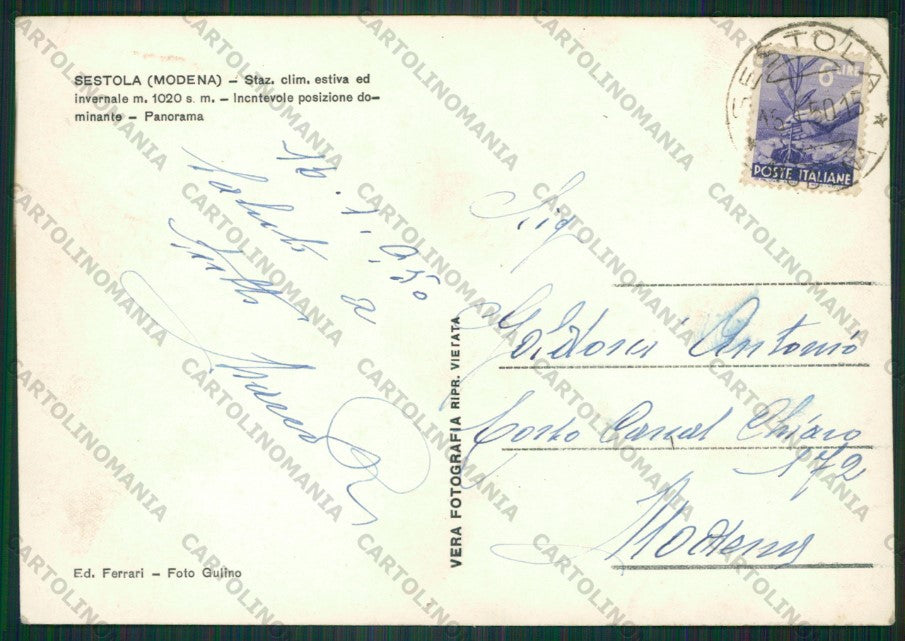 SESTOLA (MODENA) – Staz. clim. estiva ed
invernale m. 1020 s. m. – Incntevole posizione do-
minante – Panorama
SESTOLA
6 LIRE
POSTE ITALIANE
16.1.950
saluti a
tutti
Sig
Antonio
Corso Canal Chiaro
172
Modena
VERA FOTOGRAFIA RIPR. VIETATA
Ed. Ferrari – Foto Gulino
CARTOLINOMANIA